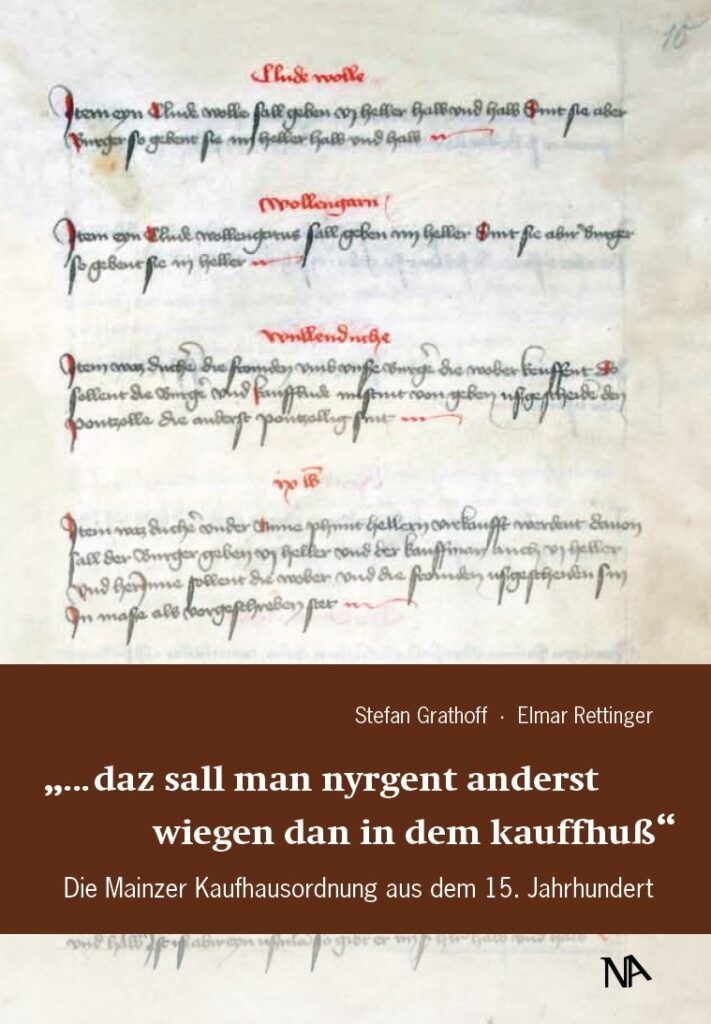 10
Clude wolle
Item eyn Clude wolle sall geben vj heller halb vnd halb Sint sie aber
Burger so gebent sie iij heller halb vnd halb
Wollengarn
Item eyn Clude wollengarns sall geben iiij heller Sint sie abir Burger
so gebent sie iij heller
Wullenduche
Item waz duche die fremden vmb vnse Burger die wober keuffent Do
sollent die Burger vnd kaufflude von geben vsgescheiden den
pontzolle die anderst pontzollig sint
Item waz duche vnder phunt hellern verkaufft werdent dauon
sall der Burger geben vj heller vnd der kauffman auch vj heller
vnd herInne sollent die wober vnd die fremden vsgescheiden sin
In masse als vorgeschreben stet
Stefan Grathoff · Elmar Rettinger
„... daz sall man nyrgent anderst
wiegen dan in dem kauffhuß“
Die Mainzer Kaufhausordnung aus dem 15. Jahrhundert
vnd halb
NA